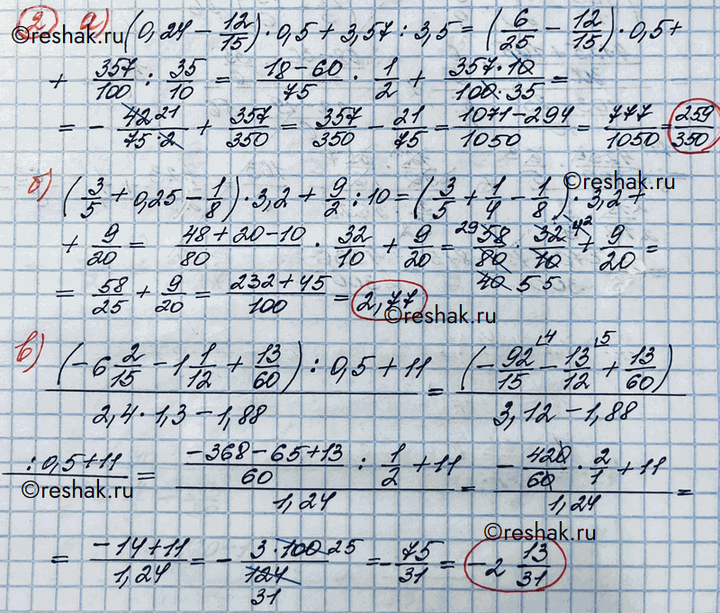 2 а) (0,24 − 12/15) · 0,5 + 3,57 : 3,5 = (6/25 − 12/15) · 0,5 +
©reshak.ru
+ 357/100 : 35/10 = (18−60)/75 · 1/2 + (357·10)/(100·35) =
= − (42 21)/(75·2) + 357/350 = 357/350 − 21/75 = (1071−294)/1050 = 777/1050 = 259/350
©reshak.ru
б) (3/5 + 0,25 − 1/8) · 3,2 + 9/2 : 10 = (3/5 + 1/4 − 1/8) · 3,2 +
+ 9/20 = (48+20−10)/80 · 32/10 + 9/20 = (29 58)/(80 40) · (32 4 2)/(10 5 5) + 9/20 =
= 58/25 + 9/20 = (232+45)/100 = 2,77
©reshak.ru
в) ((−6 2/15 − 1 1/12 + 13/60) : 0,5 + 11)/(2,4 · 1,3 − 1,88) = (−92/15 4 − 13/12 5 + 13/60)/(3,12 − 1,88)
(: 0,5 + 11) = ((−368−65+13)/60 : 1/2 + 11)/1,24 = (−420/60 · 2/1 + 11)/1,24 =
©reshak.ru
©reshak.ru
= (−14+11)/1,24 = − (3·100 25)/(124 31) = −75/31 = −2 13/31